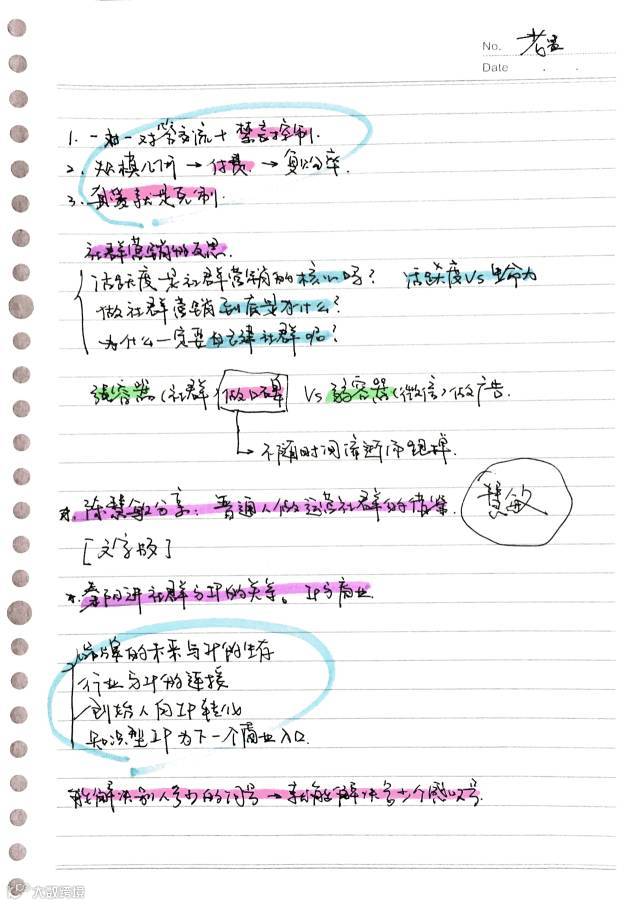 No. 老
Date
1. 一对一对等交流+禁言控制.
2. 规模几何→付费→复购率.
3. 就是克制.
社群营销的反思.
活跃度是社群营销的核心吗? 活跃度Vs生命力
做社群营销到底是为什么?
为什么一定要自己建社群呢?
强容器(社群)做口碑 Vs 弱容器(微信)做广告.
不随时间流逝而
陈慧敏分享: 普通人做运营社群的 慧敏
[文字版]
秦阳讲社群与IP的关系。IP与商业
品牌的未来与IP的生存
行业与IP的连接
创始人向IP转化
知识型IP为下一个商业入口.
能解决别人多少的问号→就能解决多少个感叹号.
大数跨境